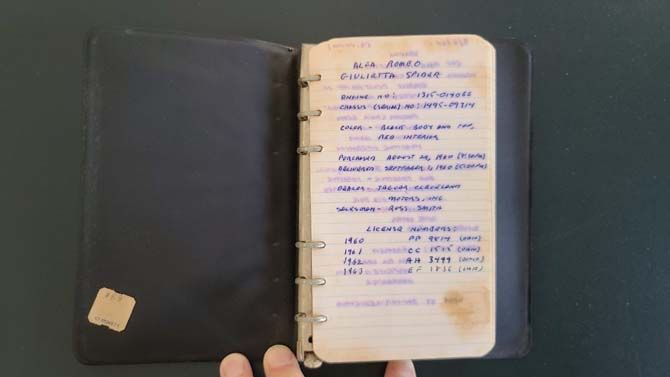 ALFA ROMEO
GIULIETTA SPIDER
ENGINE NO: 1315-014066
CHASSIS (SERIAL) NO: 1495-09214
COLOR - BLACK BODY AND TOP,
RED INTERIOR
PURCHASED AUGUST 29, 1960
DELIVERED SEPTEMBER 1, 1960
DEALER - JAGUAR CLEVELAND
MOTORS, INC
SALESMAN - ROSS SMITH
LICENSE NUMBERS:
1960 PP 9814 (OHIO)
1961 CC 1515 (OHIO)
1962 AH 3499 (OHIO)
1963 EF 1836 (OHIO)